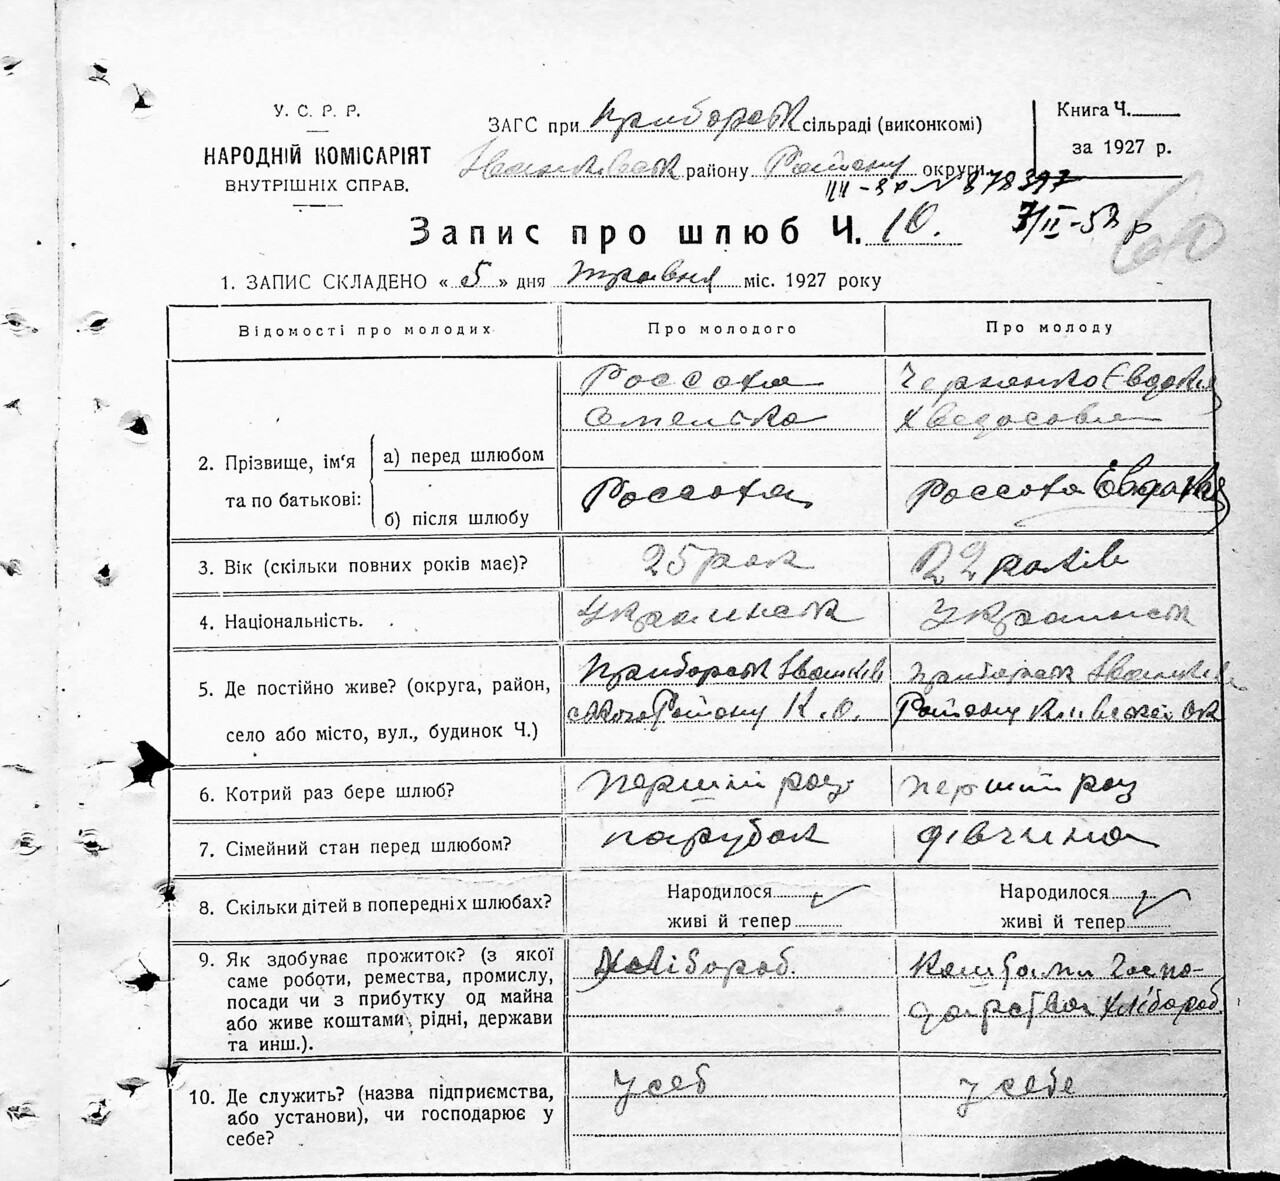 У. С. Р. Р.
НАРОДНІЙ КОМІСАРІЯТ
ВНУТРІШНІХ СПРАВ.
ЗАГС при Приборськ сільраді (виконкомі)
району Району округи
Книга Ч.
за 1927 р.
7/II-53 р
60
Запис про шлюб Ч. 10.
1. ЗАПИС СКЛАДЕНО « 5 » дня травня міс. 1927 року
Відомості про молодих
Про молодого
Про молоду
2. Прізвище, ім'я та по батькові:
а) перед шлюбом
Россоха
Омелько
Євдокія
Хведосовна
б) після шлюбу
Россоха
Россоха Євдокія
3. Вік (скільки повних років має)?
25 рок
22 років
4. Національність.
Украинськ
Украинськ
5. Де постійно живе? (округа, район,
село або місто, вул., будинок Ч.)
Приборськ Іванків
ського Району К. О.
Приборськ Іванків
Району Київської Ок
6. Котрий раз бере шлюб?
перший раз
перший раз
7. Сімейний стан перед шлюбом?
парубок
дівчина
8. Скільки дітей в попередніх шлюбах?
Народилося
живі й тепер
Народилося
живі й тепер
9. Як здобуває прожиток? (з якої
саме роботи, ремества, промислу,
посади чи з прибутку од майна
або живе коштами рідні, держави
та инш.).
Хлібороб.
Коштами Госпо-
дарства хлібороб
10. Де служить? (назва підприємства,
або установи), чи господарює у
себе?
у себ
у себе